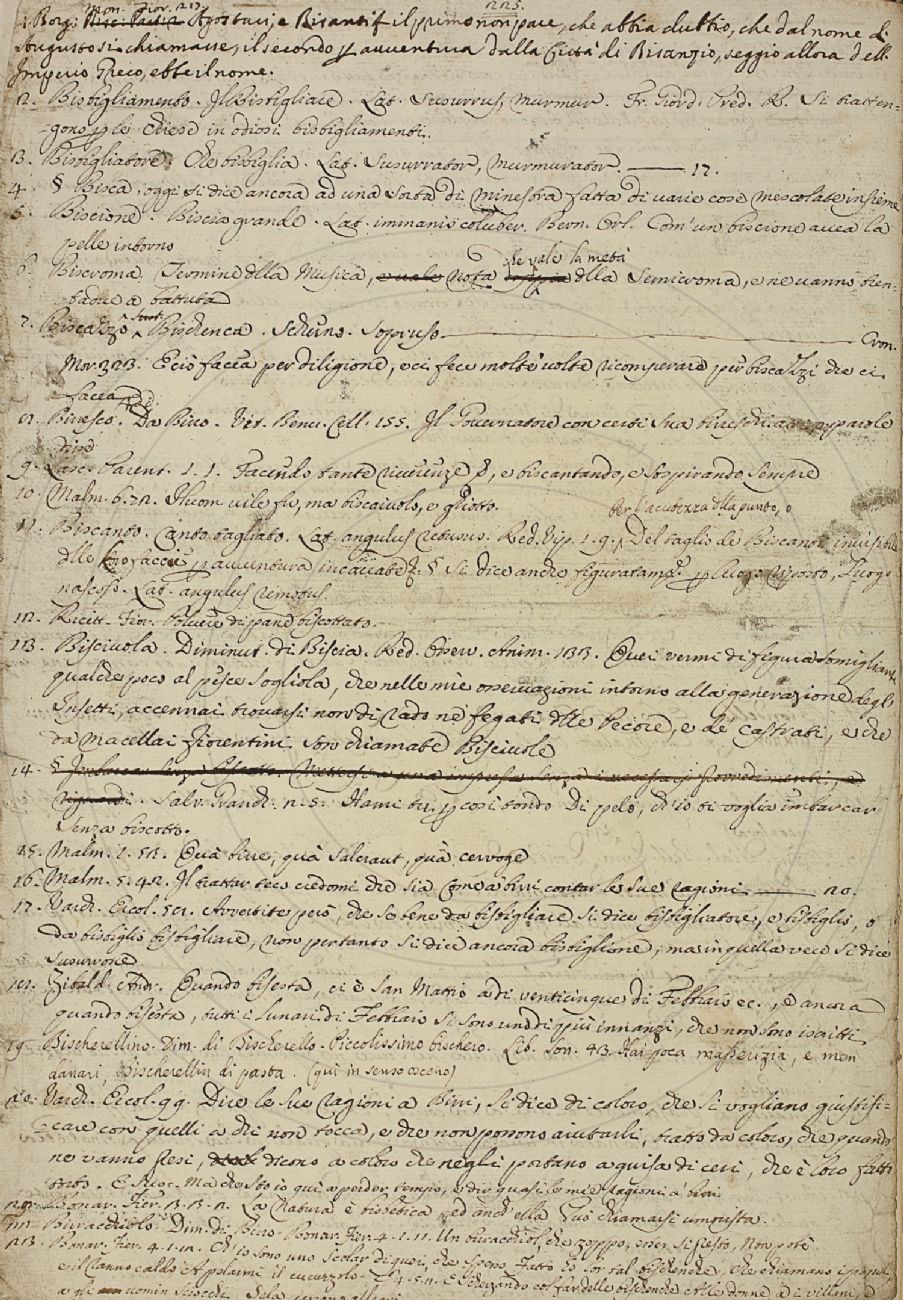 1. Borg: Mon. Fior. 217. 225. Agostari, e Bisanti ꝑ il primo non pare, che abbia dubbio, che dal nome di
Augusto si chiamasse, il secondo ꝑ avventura dalla Città di Bisanzio, seggio allora dell
Imperio Greco, ebbe il nome.
2. Bisbigliamento. Il Bisbigliare. Lat. Susurrus, murmur. Fr. Giord. Pred. R. Si tratten-
gono ꝑ le chiese in odiosi bisbigliamenti.
3. Bisbigliatore. Che bisbiglia. Lat. Susurrator, murmurator. —— 17.
4. § Bisca: oggi si dice ancora ad una sorta di minestra fatta di varie cose mescolate insieme
5. Biscione. Biscia grande. Lat. immanis coluber. Bern. Orl. Com' un biscione avea la
pelle intorno
6. Biscroma. Termine dlla Musica, e vale nota che vale la metà dlla Semicroma, e ne vanno tren-
tadue a battuta
7. Biscazzo Bischenca. Scherno. Sopruso. —— Cron.
Mor. 323. E ciò facea per diligione, e ci fece molte volte ricomperare più biscazzi che ci
facea
8. Birresco. Da Birro. Vit. Benv. Cell. 155. Il Governatore con certi sua birreschi parole
disse
9. Lasc. Parent. 1. 1. Facendo tante riverenze, e biscantando, e sospirando sempre
10. Malm. 6. 72. Huom vile fu, ma biscaiuolo, e ghiotto.
11. Biscanto. Canto tagliato. Lat. angulus retusus. Red. Vip. 1. 9. Per l'acutezza dlla punta, o Del taglio de' Biscanti invisibili
dlle faccie ꝑ avventura incavate. § Si dice anche figuratam. ꝑ luogo riposto, Luogo
nascoso. Lat. angulus remotus.
12. Ricett. Fior. Polvere di pane biscottato.
13. Bisciuola. Diminut. di Biscia. Red. Osserv. Anim. 133. Quei vermi di figura somigliante
qualche poco al pesce sogliola, che nelle mie osservazioni intorno alla generazione degl'
Insetti, accennai trovarsi non di rado ne' fegati dlle Pecore, e de' castrati, e che
da' Macellai Fiorentini son chiamate Bisciuole
14. § Imbarcar senza biscotto. Mettersi a una impresa senza i necessarj provvedimenti, e
riguardi. Salv. Granch. 2. 5. Hami tu ꝑ così tondo Di pelo, ch'io ti voglia imbarcar
senza biscotto.
15. Malm. 1. 53. Quà birre, quà salcraut, quà cervoge
16. Malm. 5. 42. Il trattar teco credomi che sia Come a' birri contar le sue ragioni —— 20.
17. Varch. Ercol. 58. Avvertite però, che se bene da bisbigliare si dice bisbigliatore, e bisbiglio, o
da bisbiglio bisbigliare, non pertanto si dice ancora bisbiglione, ma in quella vece si dice
susurrone
18. Zibald. Andr. Quando bisesta, ci è San Mattio a dì venticinque di Febbraio ec., e ancora
quando bisesta, tutti i lunari di Febbraio si sono un dì più innanzi, che non sono iscritti
19. Bischerellino. Dim. di Bischerello. Piccolissimo bischero. Lib. Son. 43. Hai poca masserizia, e men
danari, Bischerellin di pasta. (qui in senso osceno)
20. Varch. Ercol. 99. Dire le sue ragioni a' Birri, si dice di coloro, che si vogliano giustifi-
care con quelli a chi non tocca, e che non possono aiutarli, tratto da coloro, che quando
ne vanno presi, dicono a coloro che negli portano a guisa di ceri, che è loro fatto
torto. E Suoc. Ma che sto io quì a perder tempo, e dir quasi le mie ragioni a' birri
21. Bonar. Fier. 3. 3. 2. La Natura è bisbetica, ed anch'ella Può chiamarsi umorista.
22. Buracchiolo. Dim. di Bonar. Fier. 4. 1. 11. Un che zoppo, esser sì presto, Non potè
23. Bonar. Fier. 4. 1. 12. Ch'io sono uno Scolar di quei, che spesso Fatto ho lor tal bischenche, che chiamano i popoli,
e il Ranno caldo A pelarmi il cucuzzolo. E 4. 5. 2. E scherzando cosi far delle bischenche Alle donne, a i villani,
a gli uomin sciocchi